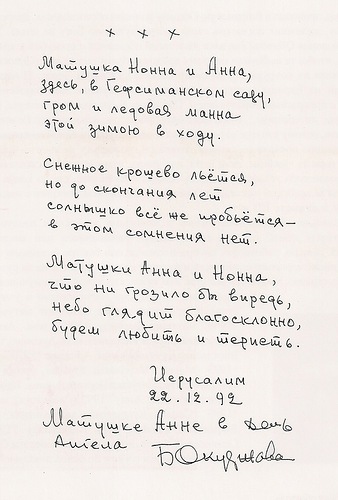 х х х
Матушка Нонна и Анна,
здесь, в Гефсиманском саду,
гром и ледовая манна
этой зимою в ходу.
Снежное крошево льётся,
но до скончания лет
солнышко всё же пробьётся—
в этом сомнения нет.
Матушки Анна и Нонна,
что ни грозило бы впредь,
небо глядит благосклонно,
будем любить и терпеть.
Иерусалим
22.12.92
Матушке Анне в день
Ангела БОкуджава